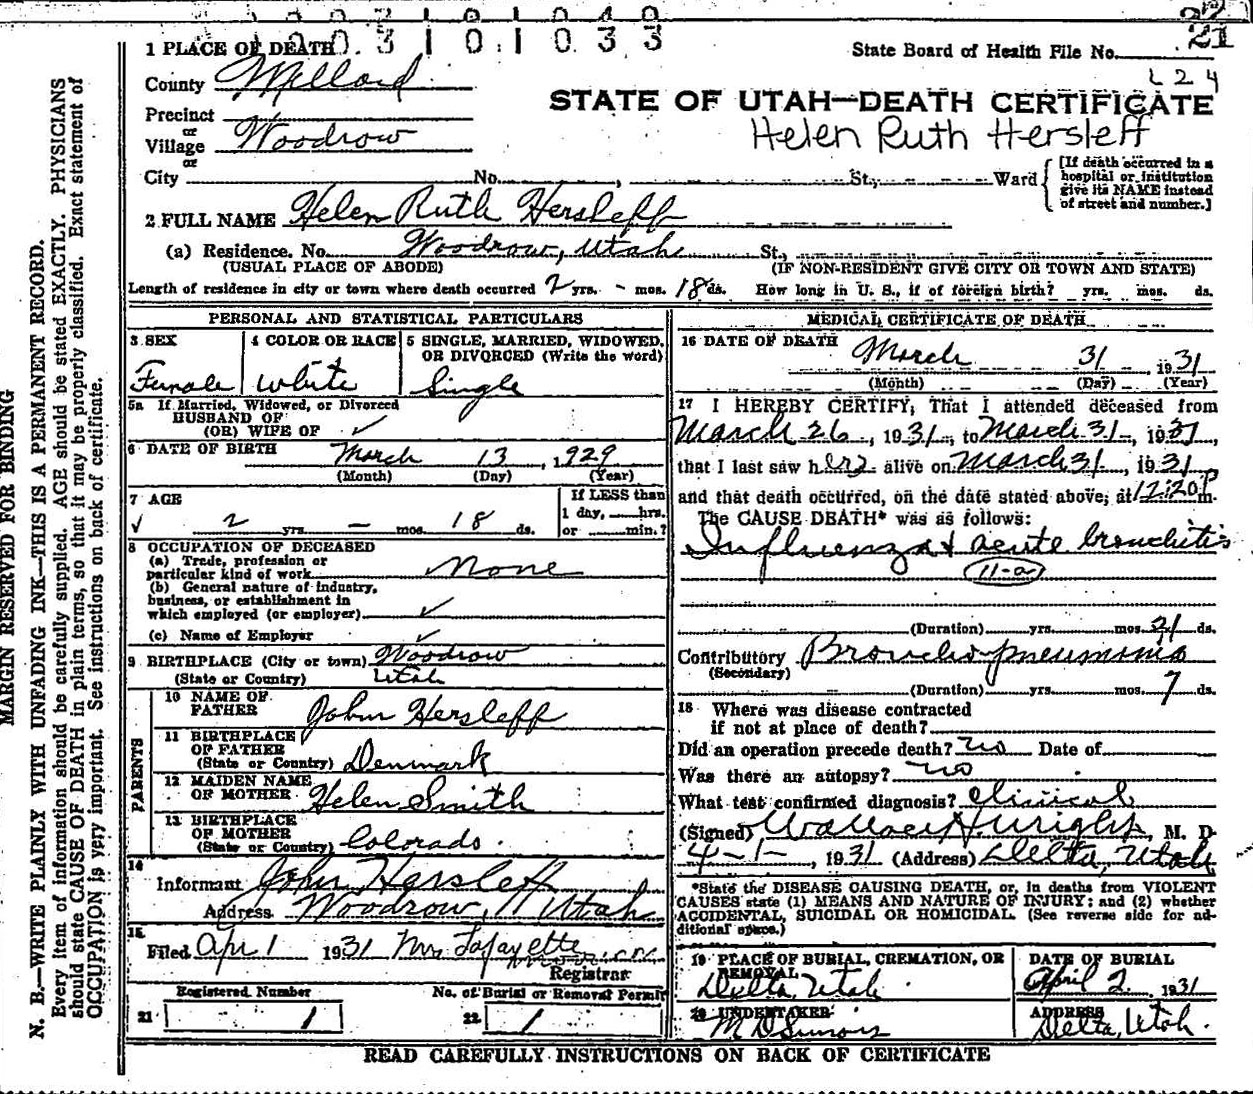 1 PLACE OF DEATH
0 0 3 1 0 1 0 3 3
State Board of Health File No.
21
County Millard
L 2 4
STATE OF UTAH—DEATH CERTIFICATE
Precinct
or
Village Woodrow
Helen Ruth Hersleff
or
City No. , St., Ward
[If death occurred in a
hospital or institution
give its NAME instead
of street and number.]
2 FULL NAME Helen Ruth Hersleff
(a) Residence. No. Woodrow, Utah St.,
(USUAL PLACE OF ABODE) (IF NON-RESIDENT GIVE CITY OR TOWN AND STATE)
Length of residence in city or town where death occurred 2 yrs. - mos. 18 ds. How long in U. S., if of foreign birth? yrs. mos. ds.
PERSONAL AND STATISTICAL PARTICULARS
3 SEX
Female
4 COLOR OR RACE
White
5 SINGLE, MARRIED, WIDOWED,
OR DIVORCED (Write the word)
Single
5a If Married, Widowed, or Divorced
HUSBAND OF
(OR) WIFE OF ✓
6 DATE OF BIRTH March 13, 1929
(Month) (Day) (Year)
7 AGE
✓ 2 yrs. — mos. 18 ds.
If LESS than
1 day, hrs.
or min.?
8 OCCUPATION OF DECEASED
(a) Trade, profession or
particular kind of work None
(b) General nature of industry,
business, or establishment in
which employed (or employer) ✓
(c) Name of Employer ✓
9 BIRTHPLACE (City or town) Woodrow
(State or Country) Utah
PARENTS
10 NAME OF
FATHER John Hersleff
11 BIRTHPLACE
OF FATHER
(State or Country) Denmark
12 MAIDEN NAME
OF MOTHER Helen Smith
13 BIRTHPLACE
OF MOTHER
(State or Country) Colorado.
14
Informant John Hersleff
Address Woodrow, Utah
15
Filed Apr 1 1931 Mrs Lafayette
Registrar
Registered Number
21 1
No. of Burial or Removal Permit
22 1
MEDICAL CERTIFICATE OF DEATH
16 DATE OF DEATH
March 31 1931
(Month) (Day) (Year)
17 I HEREBY CERTIFY, That I attended deceased from
March 26, 1931, to March 31, 1931,
that I last saw her alive on March 31, 1931
and that death occurred, on the date stated above, at 12:20 P m.
The CAUSE DEATH* was as follows:
Influenza & acute bronchitis
11-a
(Duration) yrs. mos. 21 ds.
Contributory Broncho pneumonia
(Secondary)
(Duration) yrs. mos. 7 ds.
18 Where was disease contracted
if not at place of death?
Did an operation precede death? no Date of
Was there an autopsy? no
What test confirmed diagnosis? Clinical
(Signed) Wallace H Wright, M. D.
4-1-, 1931 (Address) Delta, Utah
*State the DISEASE CAUSING DEATH, or, in deaths from VIOLENT
CAUSES state (1) MEANS AND NATURE OF INJURY; and (2) whether
ACCIDENTAL, SUICIDAL OR HOMICIDAL. (See reverse side for ad-
ditional space.)
19 PLACE OF BURIAL, CREMATION, OR
REMOVAL
Delta, Utah
DATE OF BURIAL
April 2 1931
20 UNDERTAKER
ADDRESS
Delta, Utah.
READ CAREFULLY INSTRUCTIONS ON BACK OF CERTIFICATE
MARGIN RESERVED FOR BINDING
N. B.—WRITE PLAINLY WITH UNFADING INK—THIS IS A PERMANENT RECORD.
Every item of information should be carefully supplied. AGE should be stated EXACTLY. PHYSICIANS
should state CAUSE OF DEATH in plain terms, so that it may be properly classified. Exact statement of
OCCUPATION is very important. See instructions on back of certificate.